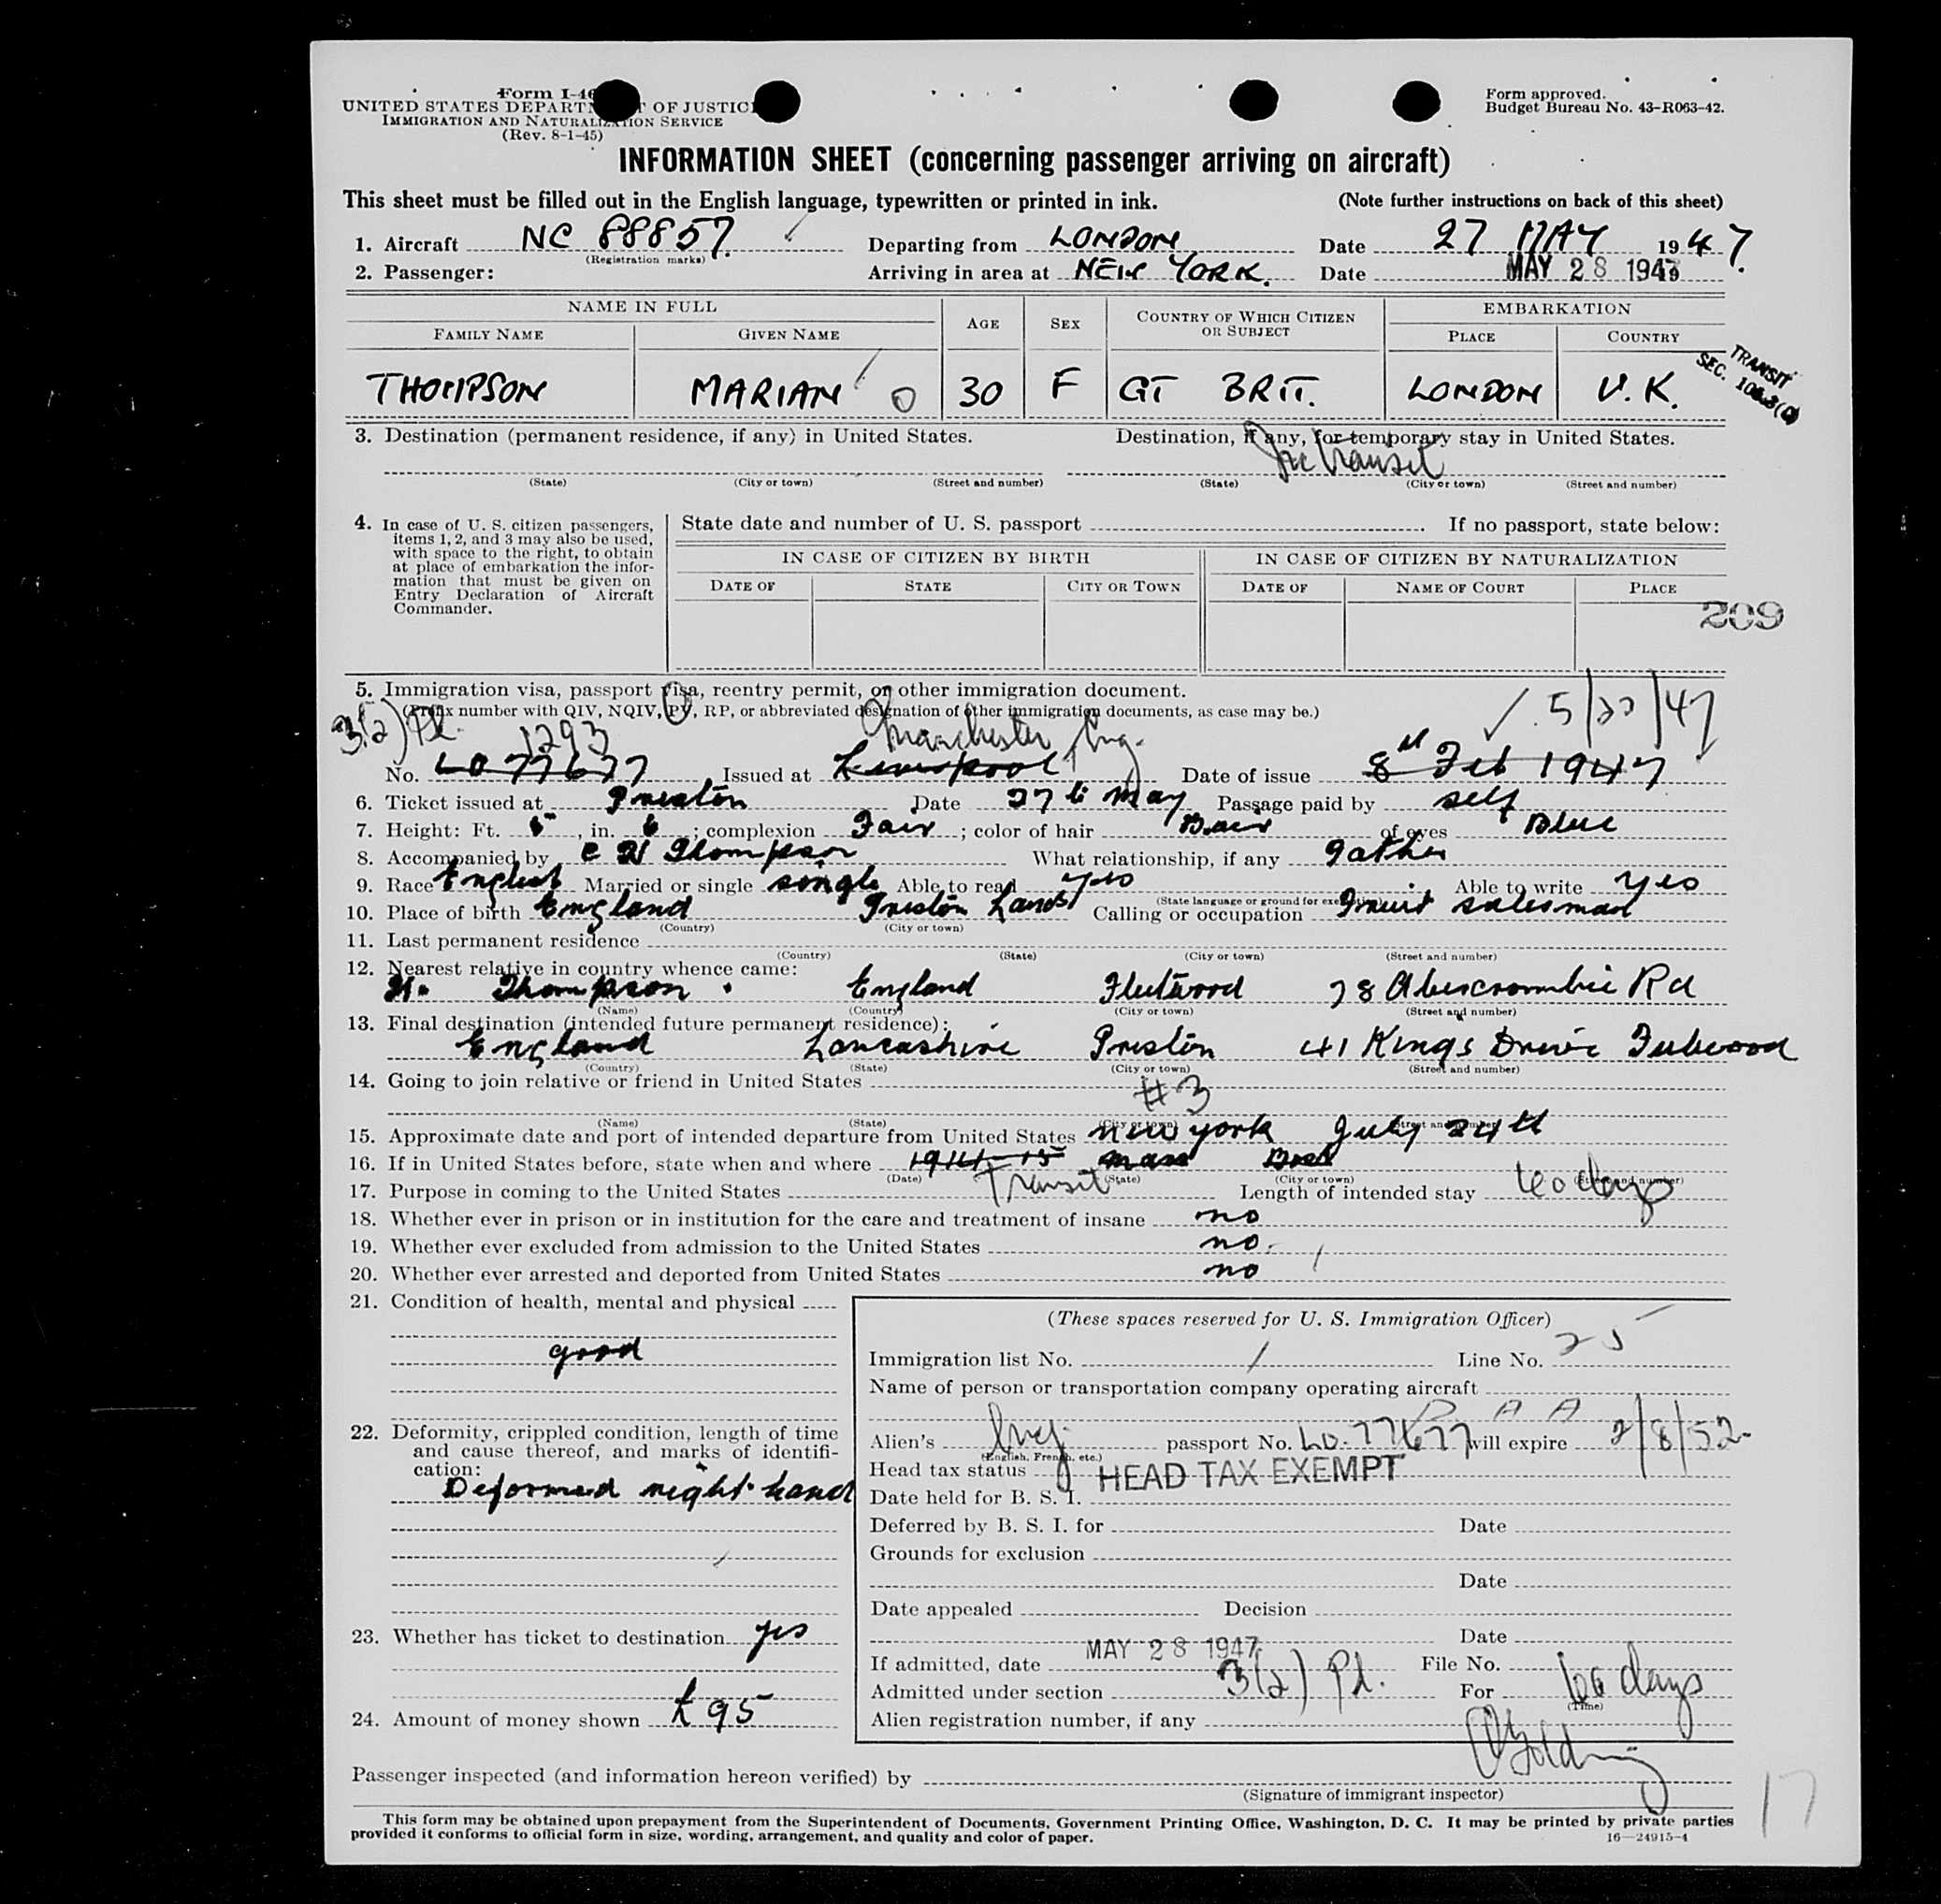 Form I-46
UNITED STATES DEPARTMENT OF JUSTICE
IMMIGRATION AND NATURALIZATION SERVICE
(Rev. 8-1-45)
Form approved.
Budget Bureau No. 43-R063-42.
INFORMATION SHEET (concerning passenger arriving on aircraft)
This sheet must be filled out in the English language, typewritten or printed in ink. (Note further instructions on back of this sheet)
1. Aircraft NC 88857. Departing from LONDON Date 27 MAY 1947.
(Registration marks)
2. Passenger: Arriving in area at NEW YORK. Date MAY 28 1947
NAME IN FULL AGE SEX COUNTRY OF WHICH CITIZEN OR SUBJECT EMBARKATION
FAMILY NAME GIVEN NAME PLACE COUNTRY
TRANSIT
SEC.
THOMPSON MARIAN O 30 F GT BRIT. LONDON U.K.
3. Destination (permanent residence, if any) in United States. Destination, if any, for temporary stay in United States.
In transit
(State) (City or town) (Street and number) (State) (City or town) (Street and number)
4. In case of U. S. citizen passengers, items 1, 2, and 3 may also be used, with space to the right, to obtain at place of embarkation the information that must be given on Entry Declaration of Aircraft Commander.
State date and number of U. S. passport If no passport, state below:
IN CASE OF CITIZEN BY BIRTH IN CASE OF CITIZEN BY NATURALIZATION
DATE OF STATE CITY OR TOWN DATE OF NAME OF COURT PLACE
209
5. Immigration visa, passport visa, reentry permit, or other immigration document.
(Prefix number with QIV, NQIV, PV, RP, or abbreviated designation of other immigration documents, as case may be.)
3(2) Pl. 1293 Manchester, Eng. 5/22/47
No. LO 77677 Issued at Liverpool Date of issue 8th Feb 1947
6. Ticket issued at Preston Date 27th May Passage paid by self
7. Height: Ft. 5, in. 6; complexion Fair; color of hair of eyes Blue
8. Accompanied by C H Thompson What relationship, if any Father
9. Race English Married or single single Able to read yes Able to write yes
(State language or ground for exemption)
10. Place of birth England Preston Lancs Calling or occupation Fruit salesman
(Country) (City or town)
11. Last permanent residence
(Country) (State) (City or town) (Street and number)
12. Nearest relative in country whence came:
H. Thompson. England Fleetwood 78 Abercrombie Rd
(Name) (Country) (City or town) (Street and number)
13. Final destination (intended future permanent residence):
England Lancashire Preston 41 Kings Drive Fulwood
(Country) (State) (City or town) (Street and number)
14. Going to join relative or friend in United States
#3
(Name) (State) (City or town) (Street and number)
15. Approximate date and port of intended departure from United States New York July 24th
16. If in United States before, state when and where Mass
(Date) (State) (City or town) (Street and number)
17. Purpose in coming to the United States Transit Length of intended stay 60 days
18. Whether ever in prison or in institution for the care and treatment of insane no
19. Whether ever excluded from admission to the United States no.
20. Whether ever arrested and deported from United States no
21. Condition of health, mental and physical
good
22. Deformity, crippled condition, length of time and cause thereof, and marks of identification:
Deformed right hand
23. Whether has ticket to destination yes
24. Amount of money shown £95
(These spaces reserved for U. S. Immigration Officer)
Immigration list No. 1 Line No. 25
Name of person or transportation company operating aircraft
P A A
Alien's Eng. passport No. LO-77677 will expire 2/8/52
(English, French, etc.)
Head tax status HEAD TAX EXEMPT
Date held for B. S. I.
Deferred by B. S. I. for Date
Grounds for exclusion
Date
Date appealed Decision
Date
If admitted, date MAY 28 1947 File No.
Admitted under section 3(2) Pl. For 60 days
(Time)
Alien registration number, if any
Passenger inspected (and information hereon verified) by
(Signature of immigrant inspector)
17
This form may be obtained upon prepayment from the Superintendent of Documents, Government Printing Office, Washington, D. C. It may be printed by private parties
provided it conforms to official form in size, wording, arrangement, and quality and color of paper. 16—24915-4